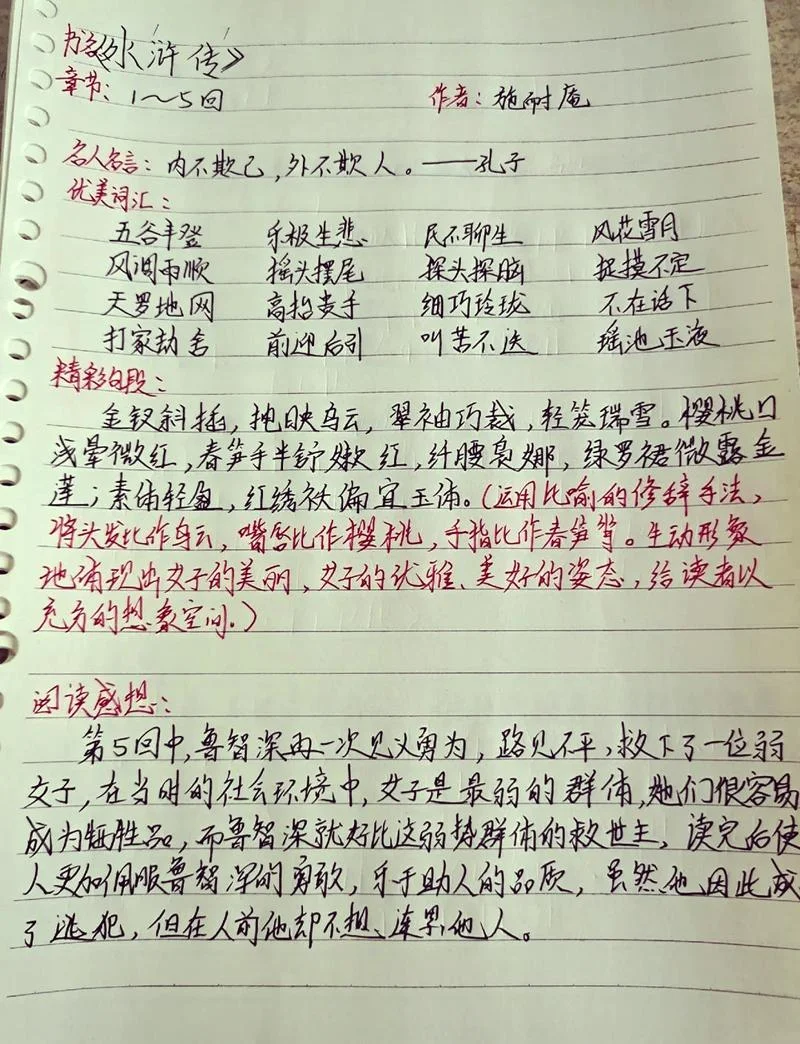 书名《水浒传》
章节：1～5回 作者：施耐庵
名人名言：内不欺己，外不欺人。——孔子
优美词汇：
五谷丰登 乐极生悲 民不聊生 风花雪月
风调雨顺 摇头摆尾 探头探脑 捉摸不定
天罗地网 高抬贵手 细巧玲珑 不在话下
打家劫舍 前迎后引 叫苦不迭 瑶池玉液
精彩句段：
金钗斜插，掩映乌云，翠袖巧裁，轻笼瑞雪。樱桃口
浅晕微红，春笋手半舒嫩红，纤腰袅娜，绿罗裙微露金
莲；素体轻盈，红绣袄偏宜玉体。（运用比喻的修辞手法，
将头发比作乌云，嘴唇比作樱桃，手指比作春笋等。生动形象
地体现出女子的美丽，女子的优雅、美好的姿态，给读者以
充分的想象空间。）
阅读感想：
第5回中，鲁智深再一次见义勇为，路见不平，救下了一位弱
女子，在当时的社会环境中，女子是最弱的群体，她们很容易
成为牺牲品，而鲁智深就好比这弱势群体的救世主，读完后使
人更加佩服鲁智深的勇敢，乐于助人的品质，虽然他因此成
了逃犯，但在人前他却不想连累他人。